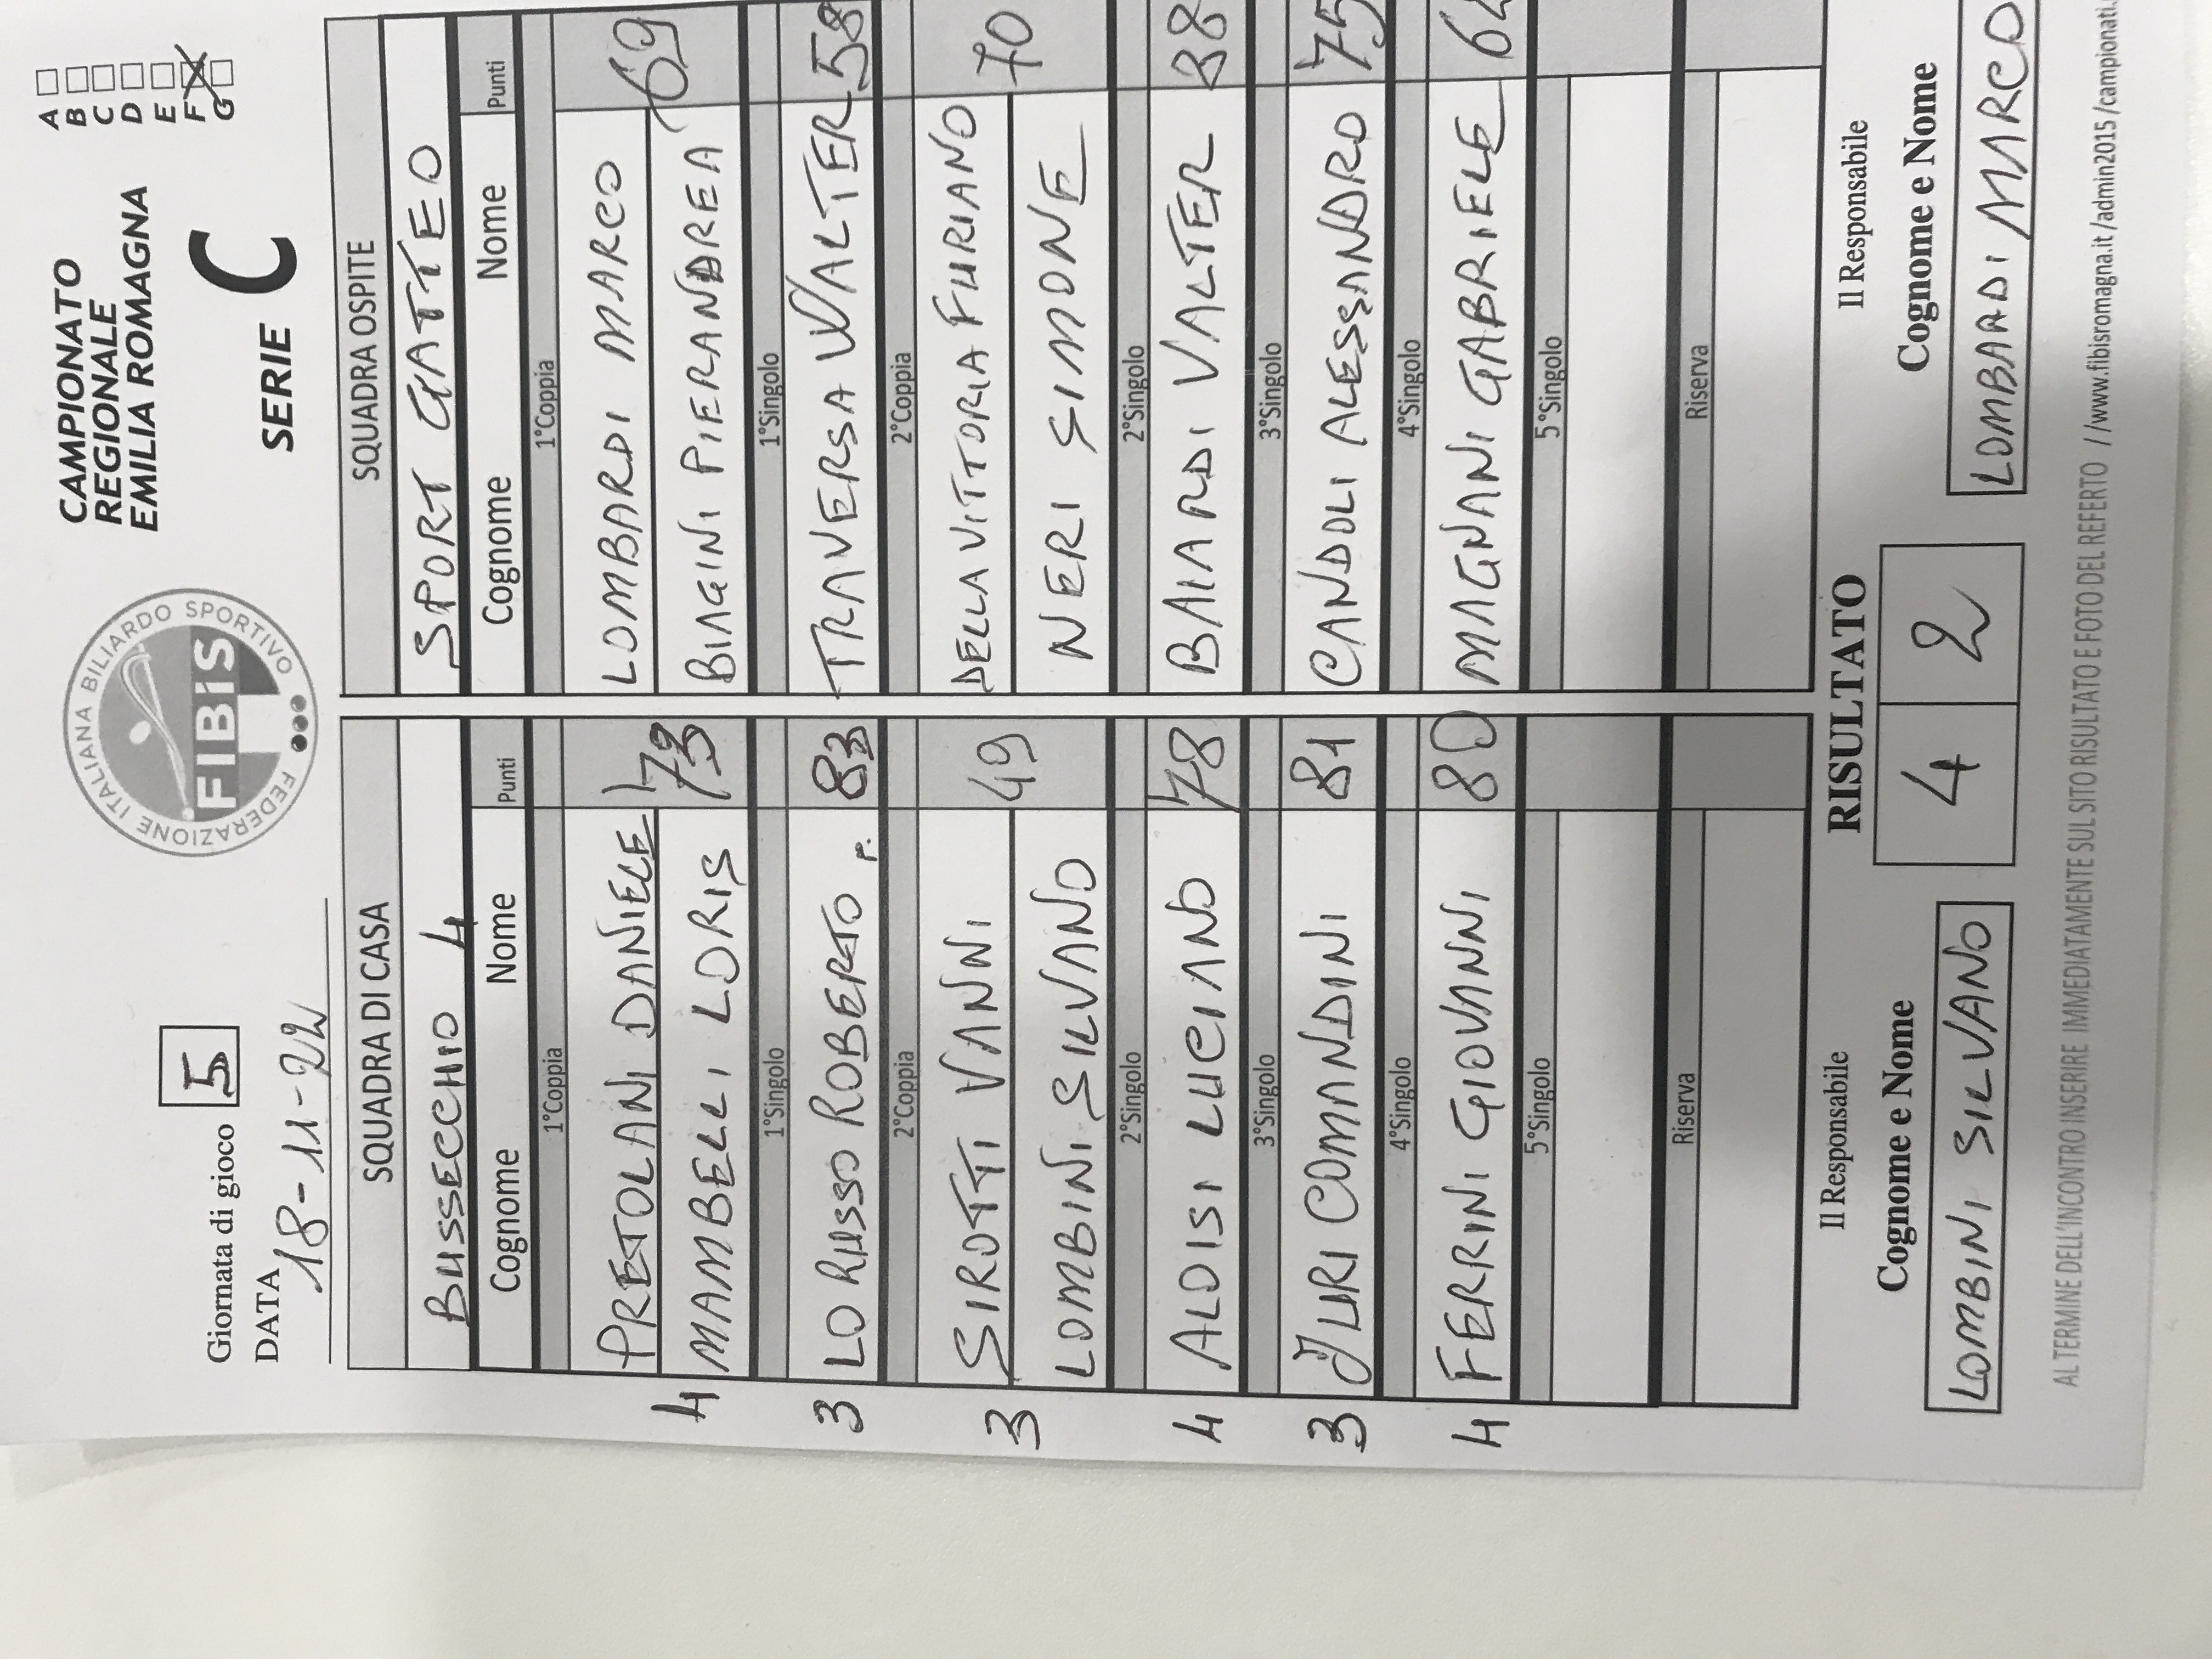 Giornata di gioco 5
DATA 18-11-22
FEDERAZIONE ITALIANA BILIARDO SPORTIVO
FIBiS
CAMPIONATO
REGIONALE
EMILIA ROMAGNA
SERIE C
A
B
C
D
E
F
G
SQUADRA DI CASA SQUADRA OSPITE
BUSSECCHIO 4 SPORT GATTEO
Cognome Nome Punti Cognome Nome Punti
1°Coppia 1°Coppia
PRETOLANI DANIELE LOMBARDI MARCO
4 MAMBELLI LORIS 73 BIAGINI PIERANDREA 69
1°Singolo 1°Singolo
3 LO RUSSO ROBERTO P. 83 TRAVERSA WALTER 58
2°Coppia 2°Coppia
SIROTTI VANNI DELLAVITTORIA FURIANO
3 LOMBINI SILVANO 49 NERI SIMONE 70
2°Singolo 2°Singolo
4 ALOISI LUCIANO 78 BAIARDI VALTER 88
3°Singolo 3°Singolo
3 JURI COMANDINI 81 CANDOLI ALESSANDRO 75
4°Singolo 4°Singolo
4 FERRINI GIOVANNI 80 MAGNANI GABRIELE
5°Singolo 5°Singolo
Riserva Riserva
Il Responsabile RISULTATO Il Responsabile
Cognome e Nome 4 2 Cognome e Nome
LOMBINI SILVANO LOMBARDI MARCO
AL TERMINE DELL'INCONTRO INSERIRE IMMEDIATAMENTE SUL SITO RISULTATO E FOTO DEL REFERTO //www.fibisromagna.it/admin2015/campionati.